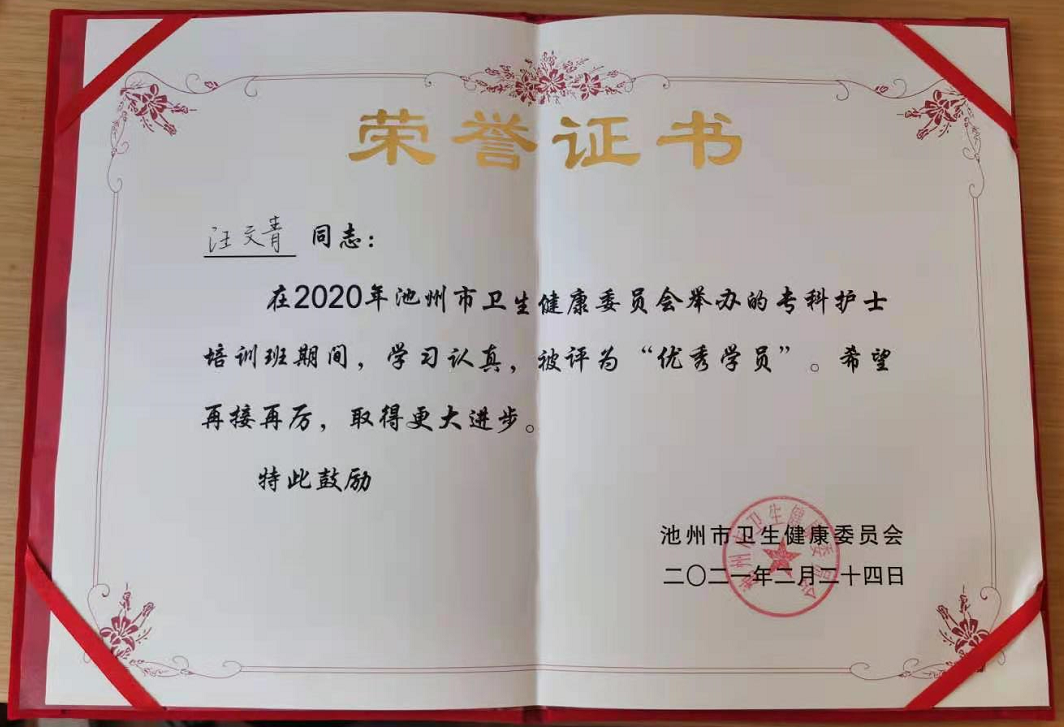 荣誉证书
汪文青 同志：
在2020年池州市卫生健康委员会举办的专科护士
培训班期间，学习认真，被评为“优秀学员”。希望
再接再厉，取得更大进步。
特此鼓励
池州市卫生健康委员会
二〇二一年二月二十四日
池州市卫生健康委员会